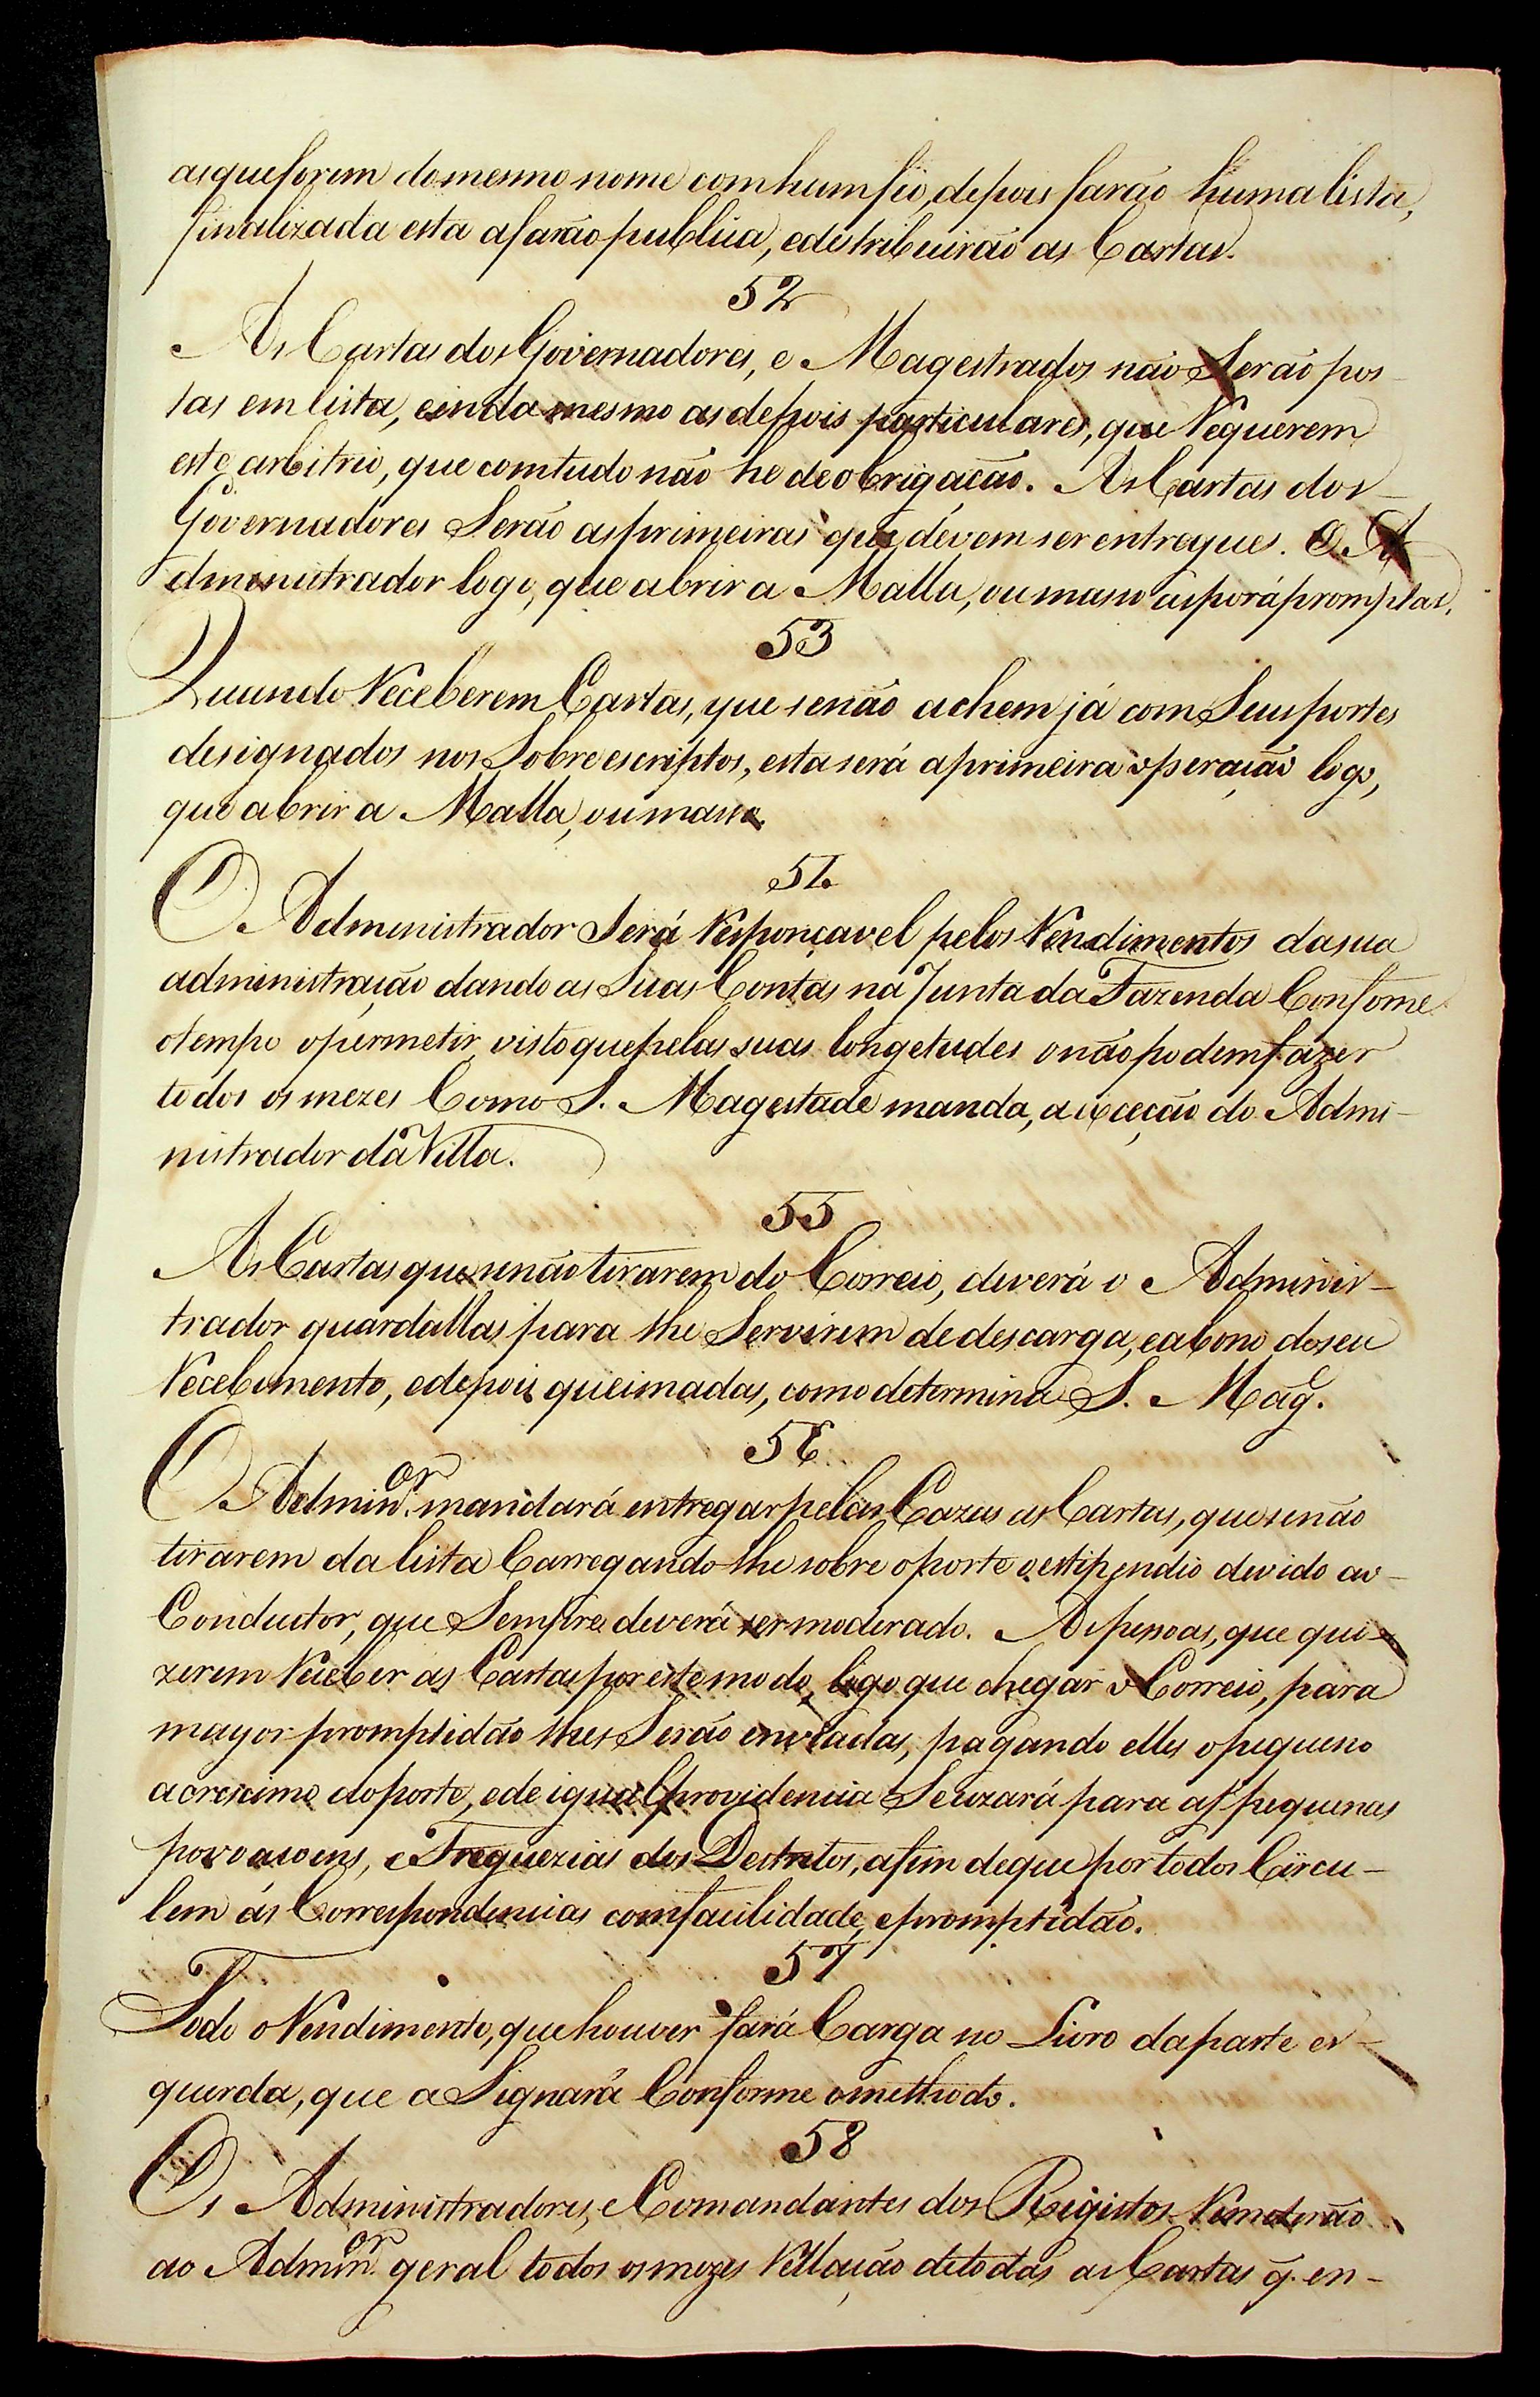 as que forem do mesmo nome com hum fio, depois farão huma lista,
finalizada esta a farão publica, e destribuirão as Cartas.
52
As Cartas dos Governadores, e Magestrados não Serão pos-
tas em lista, einda mesmo as depois particulares, que Requerem
este arbitrio, que comtudo não he de obrigação. As Cartas dos
Governadores Serão as primeiras que devem ser entregues. O A
dmenistrador logo, que abrir a Malla, ou masso as porá promptas.
53
Quando Receberem Cartas, que se não achem já com Seus portes
designados nos Sobreescriptos, esta será a primeira operação logo,
que abrir a Malla, ou masso.
54
O Administrador Será Responçavel pelos Rendimentos da sua
administração dando as Suas Contas na Junta da Fazenda Confome
o tempo o permetir, visto que pelas suas longetudes o não podem fazer
todos os mezes Como S. Magestade manda, a exceção do Admi-
nistrador da Villa.
55
As Cartas que se não tirarem do Correio, deverá o Adminis-
trador guardallas para lhe Servirem de descarga, e abono do seu
Recebimento, e depois queimadas, como determina S. Mag.e
56
O Admin.or mandará entregar pelas Cazas as Cartas, que se não
tirarem da lista Carregando-lhe sobre o porte o estipendio devido ao
Conductor, que Sempre deverá ser moderado. As pessoas, que qui-
zerem Receber as Cartas por este modo, logo que chegar o Correio, para
mayor promptidão lhes Serão enviadas, pagando elles o pequeno
acrescimo do porte, e de igual providencia Se uzará para as pequenas
povoacoens, e Freguezias dos Destritos, afim de que por todos Circu-
lem ás Correspondencias com facilidade, e promptidão.
57
Todo o Rendimento, que houver fará Carga no Livro da parte es-
querda, que a Signará Conforme o methodo.
58
Os Administradores, e Comandantes dos Registos Remeterão
ao Admin.or geral todos os mezes Rellação de todas as Cartas q̃. en-